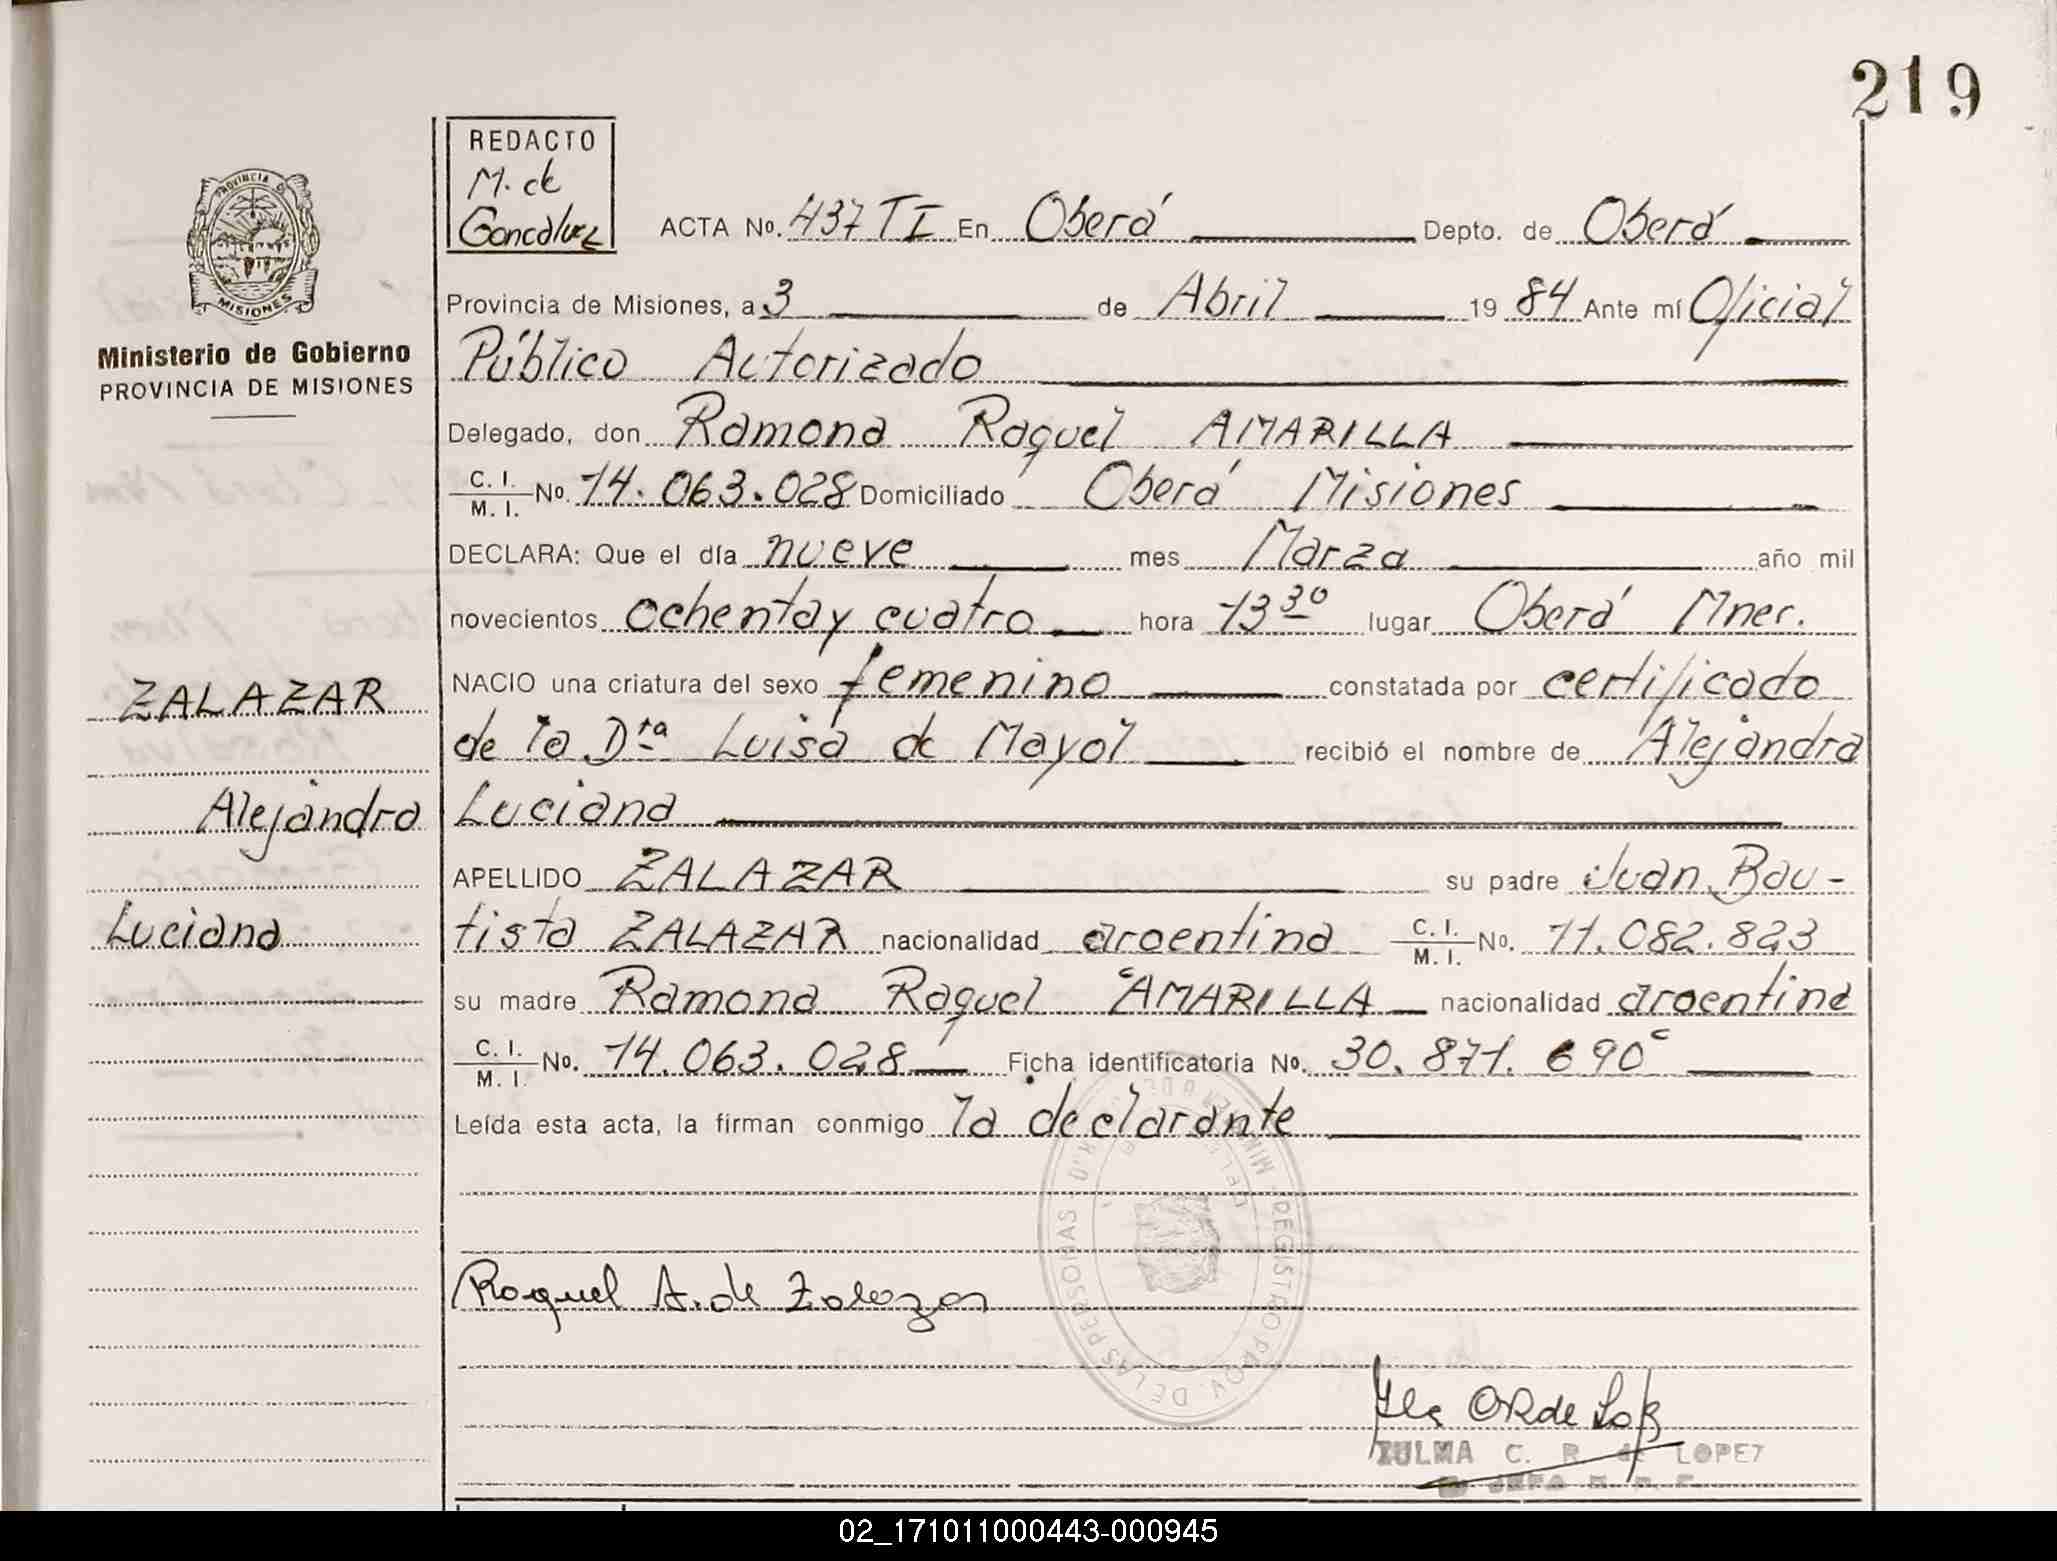 219
REDACTO
M. de
Goncalvez
PROVINCIA DE
MISIONES
Ministerio de Gobierno
PROVINCIA DE MISIONES
ACTA No. 437 TI En Oberá Depto. de Oberá
Provincia de Misiones, a 3 de Abril 19 84 Ante mí Oficial
Público Autorizado
Delegado, don Ramona Raquel AMARILLA
C. I.
M. I. No. 14.063.028 Domiciliado Oberá Misiones
DECLARA: Que el día nueve mes Marzo año mil
novecientos ochenta y cuatro hora 13 30 lugar Oberá Mnes.
NACIO una criatura del sexo femenino constatada por certificado
de la Dra Luisa de Mayol recibió el nombre de Alejandra
Luciana
APELLIDO ZALAZAR su padre Juan Bau-
tista ZALAZAR nacionalidad argentina C. I.
M. I. No. 11.082.823
su madre Ramona Raquel AMARILLA nacionalidad argentina
C. I.
M. I. No. 14.063.028 Ficha identificatoria No. 30.871.690
Leída esta acta, la firman conmigo la declarante
ZALAZAR
Alejandra
Luciana
Raquel A. de Zalazar
REGISTRO PROV. DE LAS PERSONAS
ZULMA C. R. de LOPEZ
JEFA
02_171011000443-000945